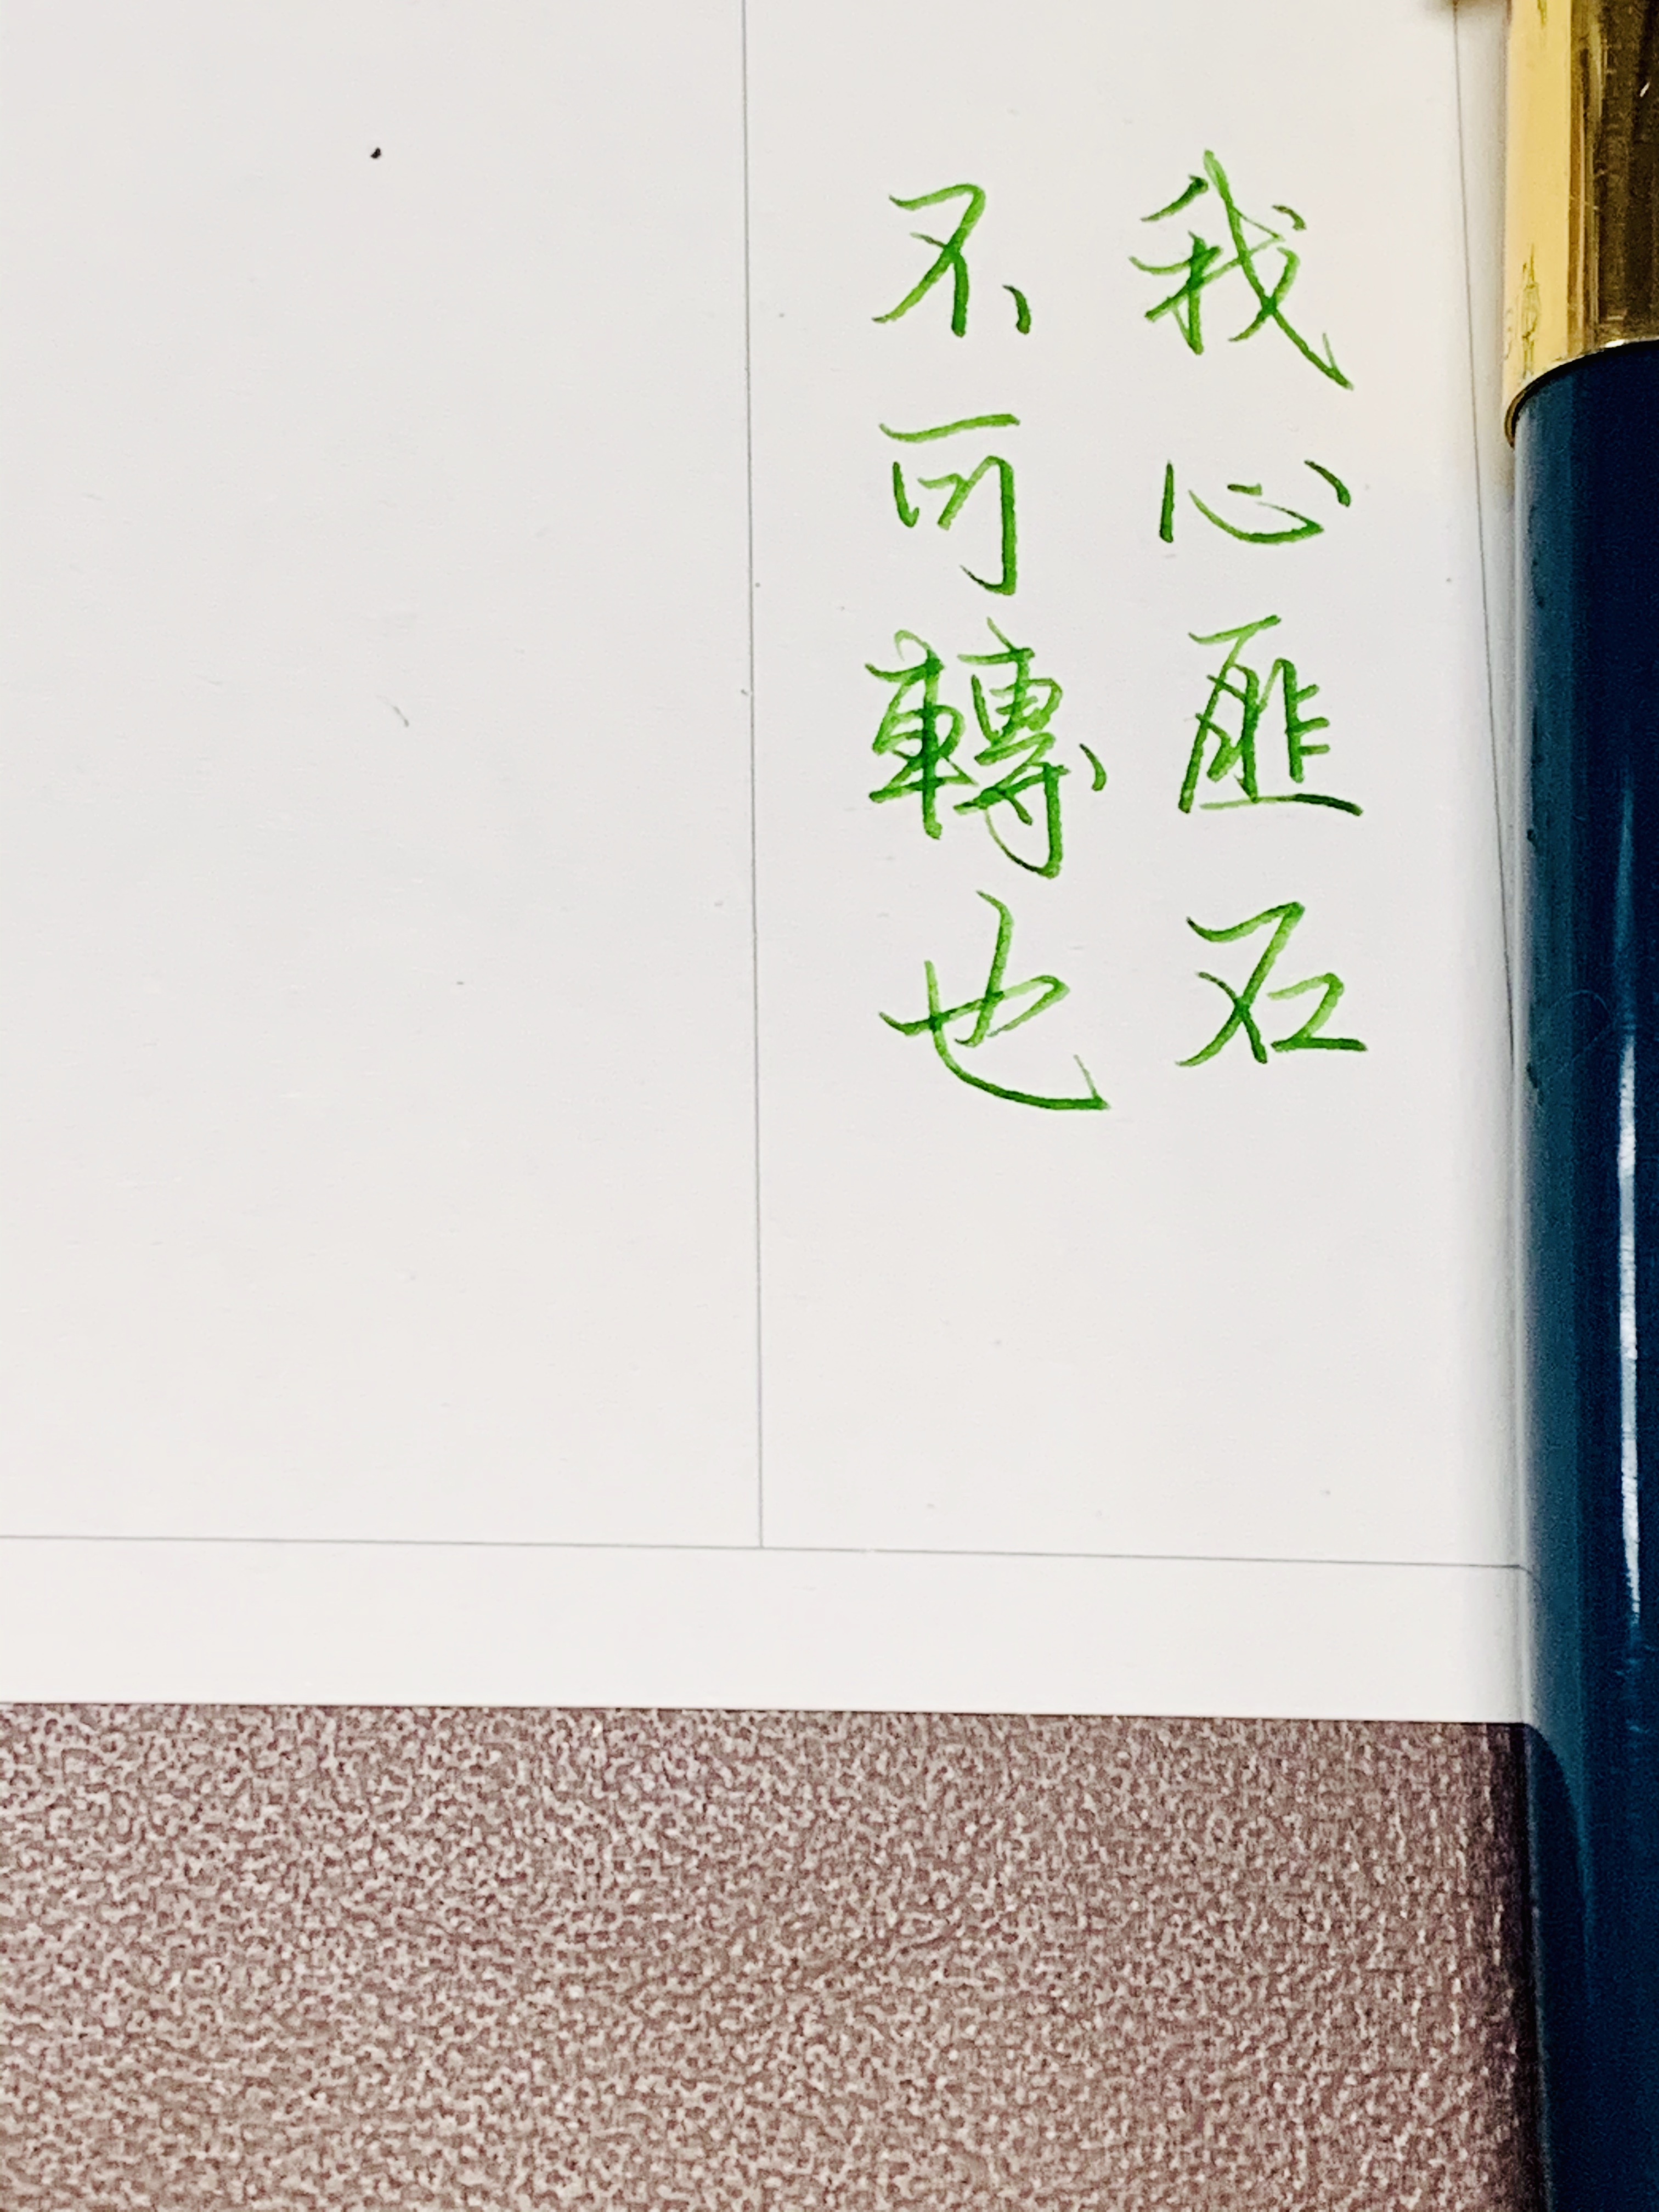 我心匪石
不可轉也